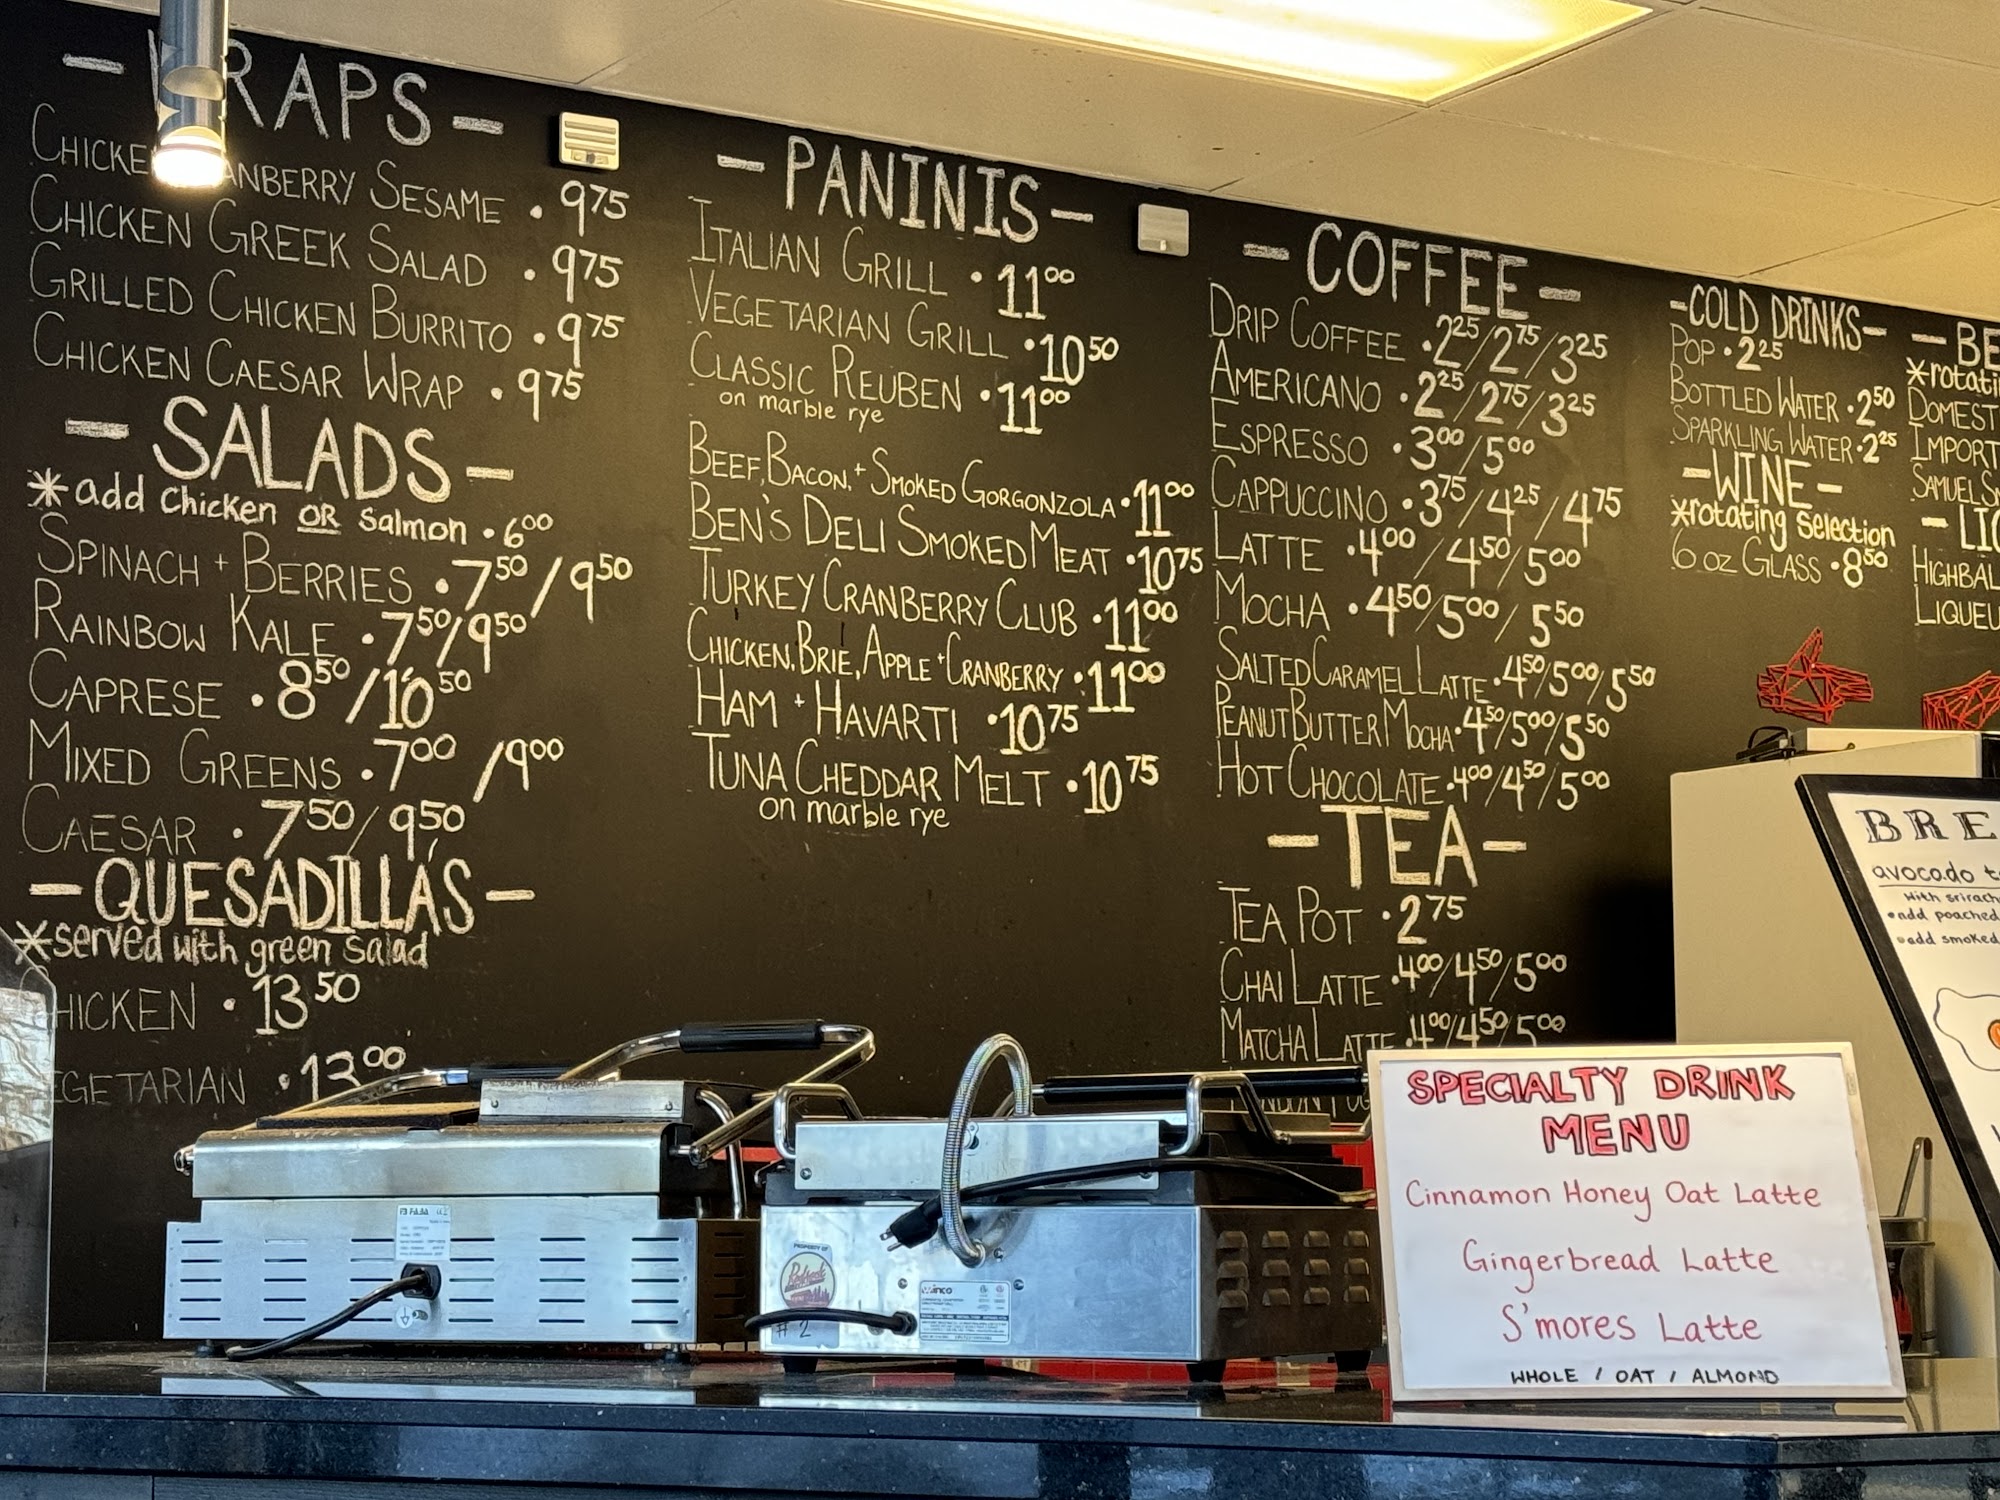 - WRAPS -
CHICKEN CRANBERRY SESAME • 9.75
CHICKEN GREEK SALAD • 9.75
GRILLED CHICKEN BURRITO • 9.75
CHICKEN CAESAR WRAP • 9.75
- SALADS -
*add Chicken OR Salmon • 6.00
SPINACH + BERRIES • 7.50 / 9.50
RAINBOW KALE • 7.50 / 9.50
CAPRESE • 8.50 / 10.50
MIXED GREENS • 7.00 / 9.00
CAESAR • 7.50 / 9.50
- QUESADILLAS -
*served with green salad
CHICKEN • 13.50
VEGETARIAN • 13.00
- PANINIS -
ITALIAN GRILL • 11.00
VEGETARIAN GRILL • 10.50
CLASSIC REUBEN • 11.00
on marble rye
BEEF, BACON, + SMOKED GORGONZOLA • 11.00
BEN'S DELI SMOKED MEAT • 10.75
TURKEY CRANBERRY CLUB • 11.00
CHICKEN, BRIE, APPLE + CRANBERRY • 11.00
HAM + HAVARTI • 10.75
TUNA CHEDDAR MELT • 10.75
on marble rye
- COFFEE -
DRIP COFFEE • 2.25 / 2.75 / 3.25
AMERICANO • 2.25 / 2.75 / 3.25
ESPRESSO • 3.00 / 5.00
CAPPUCCINO • 3.75 / 4.25 / 4.75
LATTE • 4.00 / 4.50 / 5.00
MOCHA • 4.50 / 5.00 / 5.50
SALTED CARAMEL LATTE • 4.50 / 5.00 / 5.50
PEANUT BUTTER MOCHA • 4.50 / 5.00 / 5.50
HOT CHOCOLATE • 4.00 / 4.50 / 5.00
- TEA -
TEA POT • 2.75
CHAI LATTE • 4.00 / 4.50 / 5.00
MATCHA LATTE • 4.00 / 4.50 / 5.00
- COLD DRINKS -
POP • 2.25
BOTTLED WATER • 2.50
SPARKLING WATER • 2.25
- WINE -
*rotating selection
6 OZ GLASS • 8.50
- BE
*rotati
DOMEST
IMPORT
SAMUEL S
- LI
HIGHBAL
LIQUEU
BRE
avocado t
with srirach
• add poached
• add smoked
SPECIALTY DRINK
MENU
Cinnamon Honey Oat Latte
Gingerbread Latte
S'mores Latte
WHOLE / OAT / ALMOND
PROPERTY OF
# 2
Winco